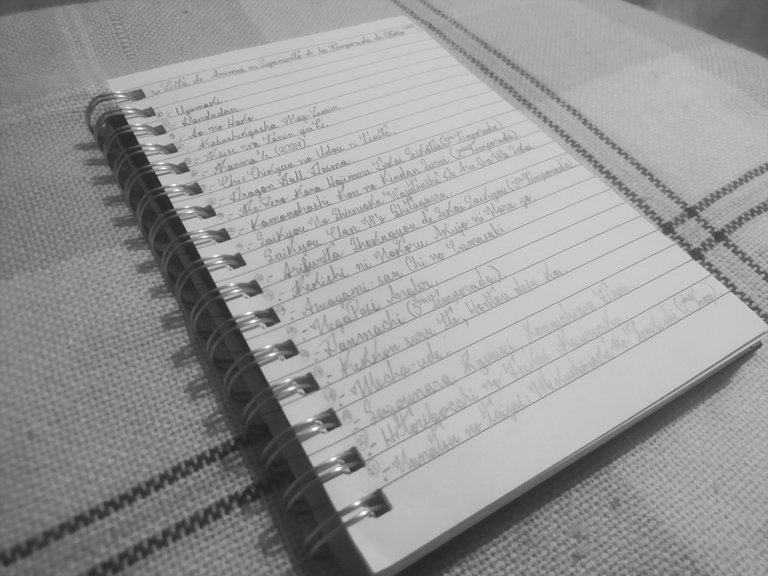 Lista de Animes en Seguimiento de la Temporada de Otoño
- Uzumaki.
- Dandadan.
- Ao no Hako.
- Kabushikigaisha Magi-Lumière
- Naze ni
- Ranma ½ (2024)
- Chi: Chikyuu no Undou ni Tsuite.
- Dragon Ball Daima.
- Re:Zero Kara Hajimeru Isekai Seikatsu (3ra Temporada)
- Kamonohashi Ron no Kindan Suiri (2da Temporada)
- Saikyou no Shienshoku "Wajutsushi" De Aru Ore Wa Sekai
Saikyou Clan Wo Shitagaeru.
- Arifureta Shokugyou de Sekai Saikyou (3ra Temporada)
- Rekishi ni Nokoru Akujo ni Naru zo
- Amagami-san Chi no Enmusubi
- NegaPosi Angler.
- Danmachi (5ta Temporada).
- Kekkon suru tte, Hontou desu ka.
- Mecha-ude.
- Sayounara Ryuusei, Konnichiwa Jinsei.
- Hitoribocchi no Isekai Kouryaku.
- Nanatsu no Taizai: Mokushiroku no Yonkishi (2da